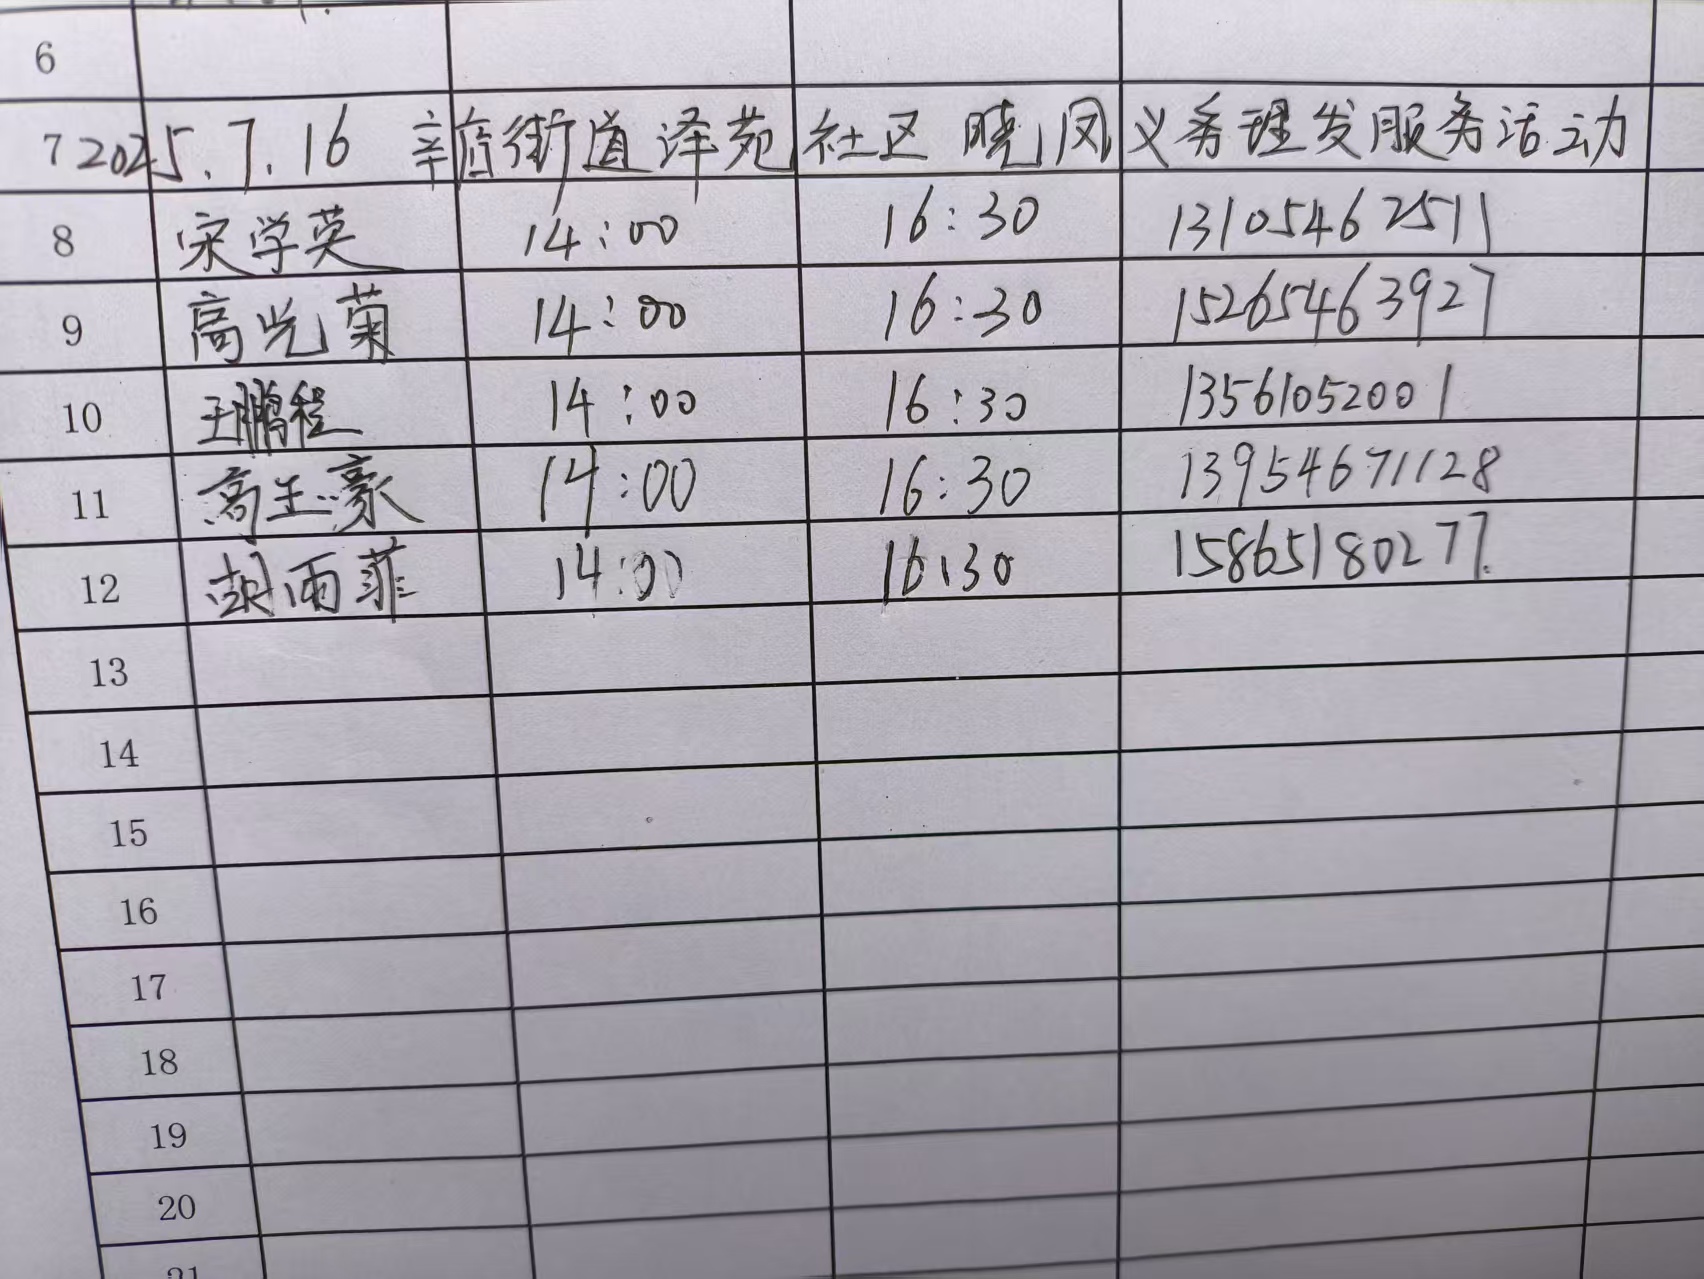 6
7 2025.7.16 辛店街道泽苑社区晓风义务理发服务活动
8 宋学英 14:00 16:30 13105462511
9 高光菊 14:00 16:30 15265463927
10 王鹏程 14:00 16:30 13561052001
11 高玉豪 14:00 16:30 13954671128
12 胡雨菲 14:00 16:30 15865180277.
13
14
15
16
17
18
19
20
21